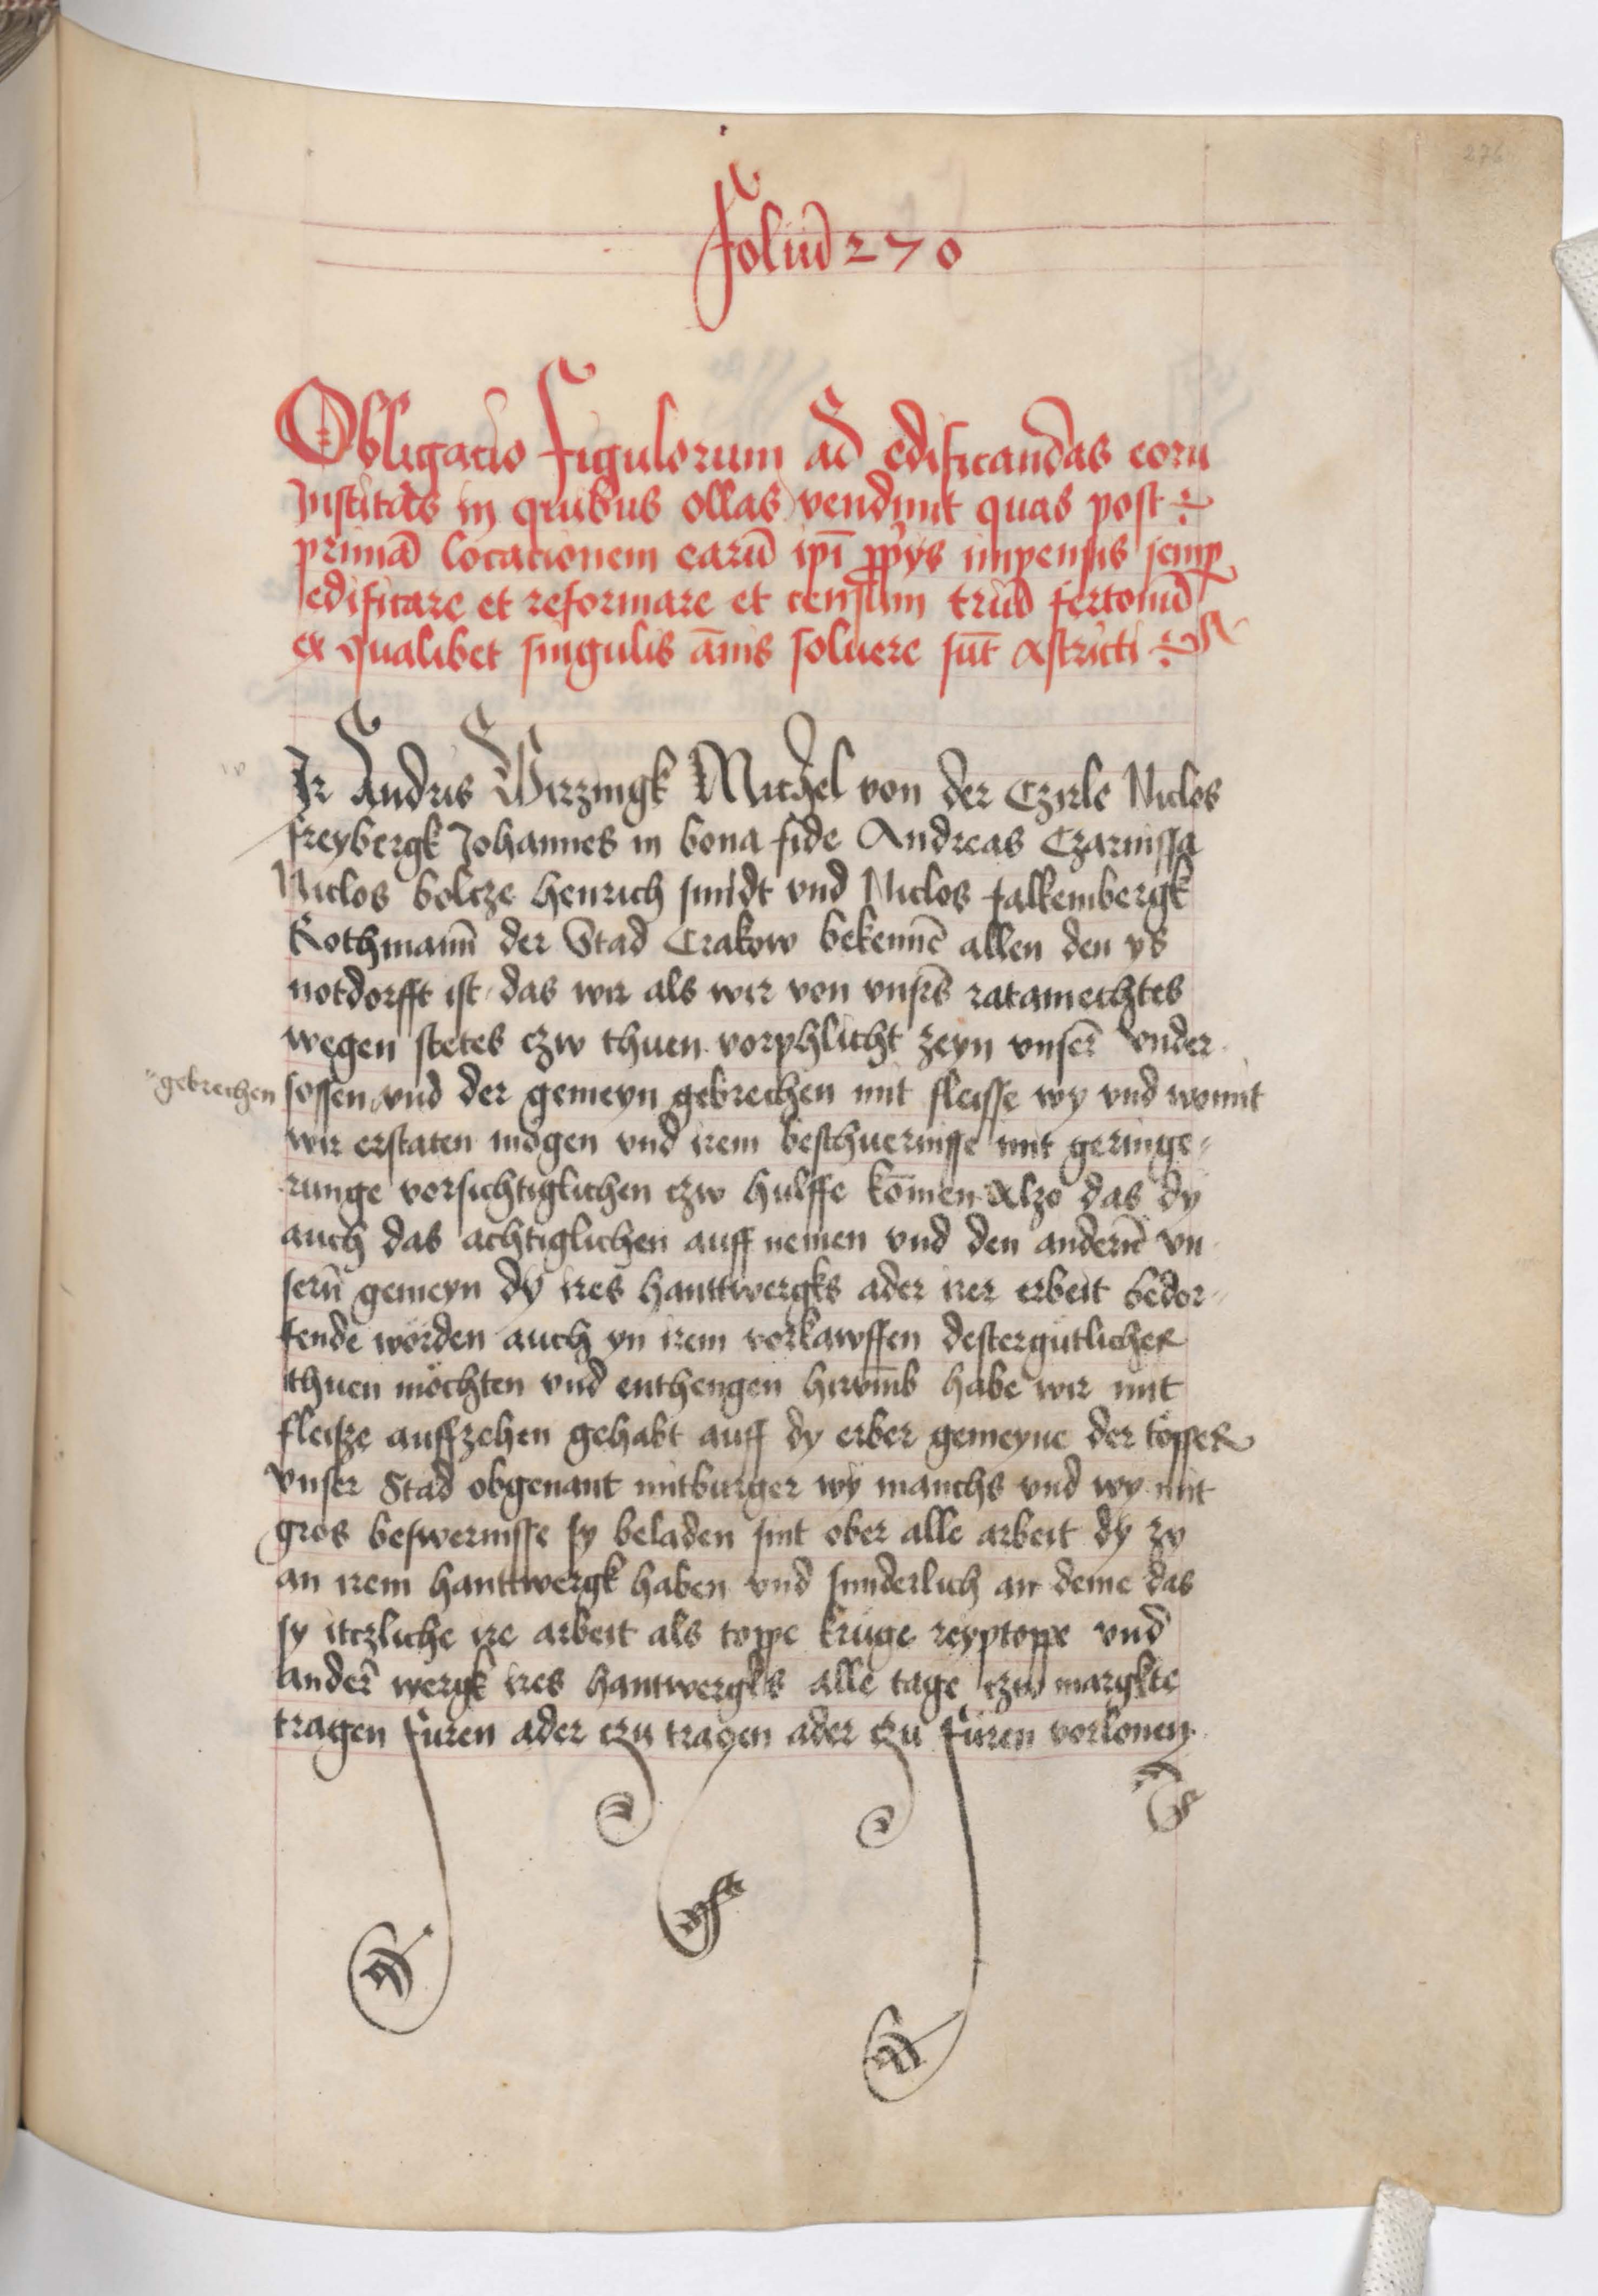 276
Foliū 270
Obligacio Figulorum ad edificandas eorū
Institas in quibus ollas vendunt quas post
primā locacionem earū ipī ꝓprijs impensis semꝑ
edificare et reformare et censum triū fertonū
ex qualibet singulis ānis soluere sūt astricti
Ir Andris Wirzingk Michel von der Czirle Niclos
freybergk Johannes in bona fide Andreas Czarnissa
Niclos bolcze henrich smidt vnd Niclos falkembergk
Rothmann̄ der Stad Crakow bekennē allen den ys
notdorfft ist das wir als wir von vnsrs̄ ratamechtes
wegen stetes czw thuen vorphlicht zeyn vnser̄ vnder
gebrechen
sossen vnd der gemeyn gebrechen mit fleisse wy vnd womit
wir erstaten mögen vnd irem beschuernisse mit geringe
runge vorsichtiglichen czw hulffe kōmen Alzo das dy
auch das achtiglichen auff nemen vnd den andern̄ vn
sern̄ gemeyn dy ires hanttwergks ader irer erbeit bedor
fende wörden auch yn irem vorkawffen destergütlicher
thuen möchten vnd enthengen hirvm̄b habe wir mit
fleisze auffzehen gehabt auff dy erber gemeyne der töpffer
vnser Stad obgenant mitburger wy manchs vnd wy mit
gros beswernisse sy beladen sint ober alle arbeit dy zy
an irem hanttwergk haben vnd sunderlich an deme das
sy itczliche ire arbeit als toppe krüge reyptoppe vnd
ander̄ wergk ires hantwergks alle tage czw margkte
tragen füren ader czu tragen ader czu füren vorlonen